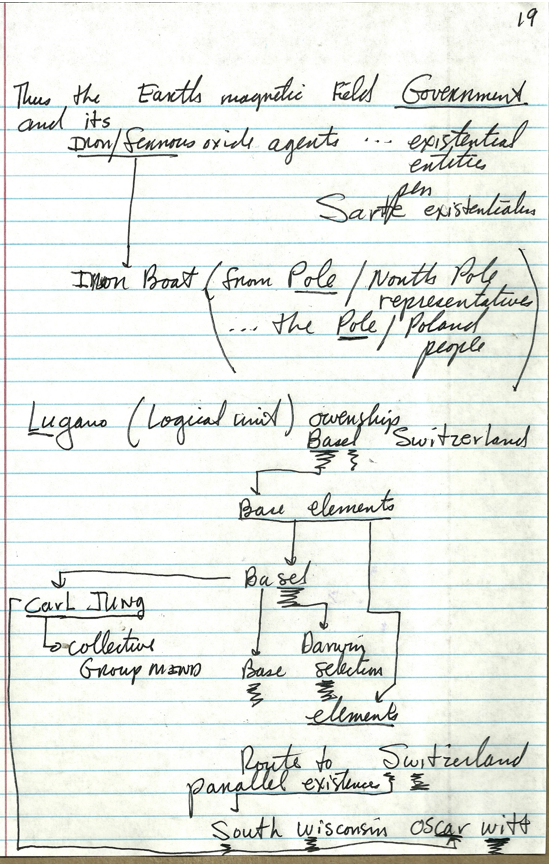 19
Thus the Earths magnetic Field Government
and its
Iron/ferrous oxide agents ... existential
entities
pen
Sartre existentiales
Iron Boat (from Pole / North Pole
representatives
... the Pole / Poland
people)
Lugano (Logical unit) owenship
Basel Switzerland
Base elements
Basel
Carl JUNG
collective
Group MIND
Darwin
Base selection
elements
Route to Switzerland
parallel existences
South wisconsin Oscar witt